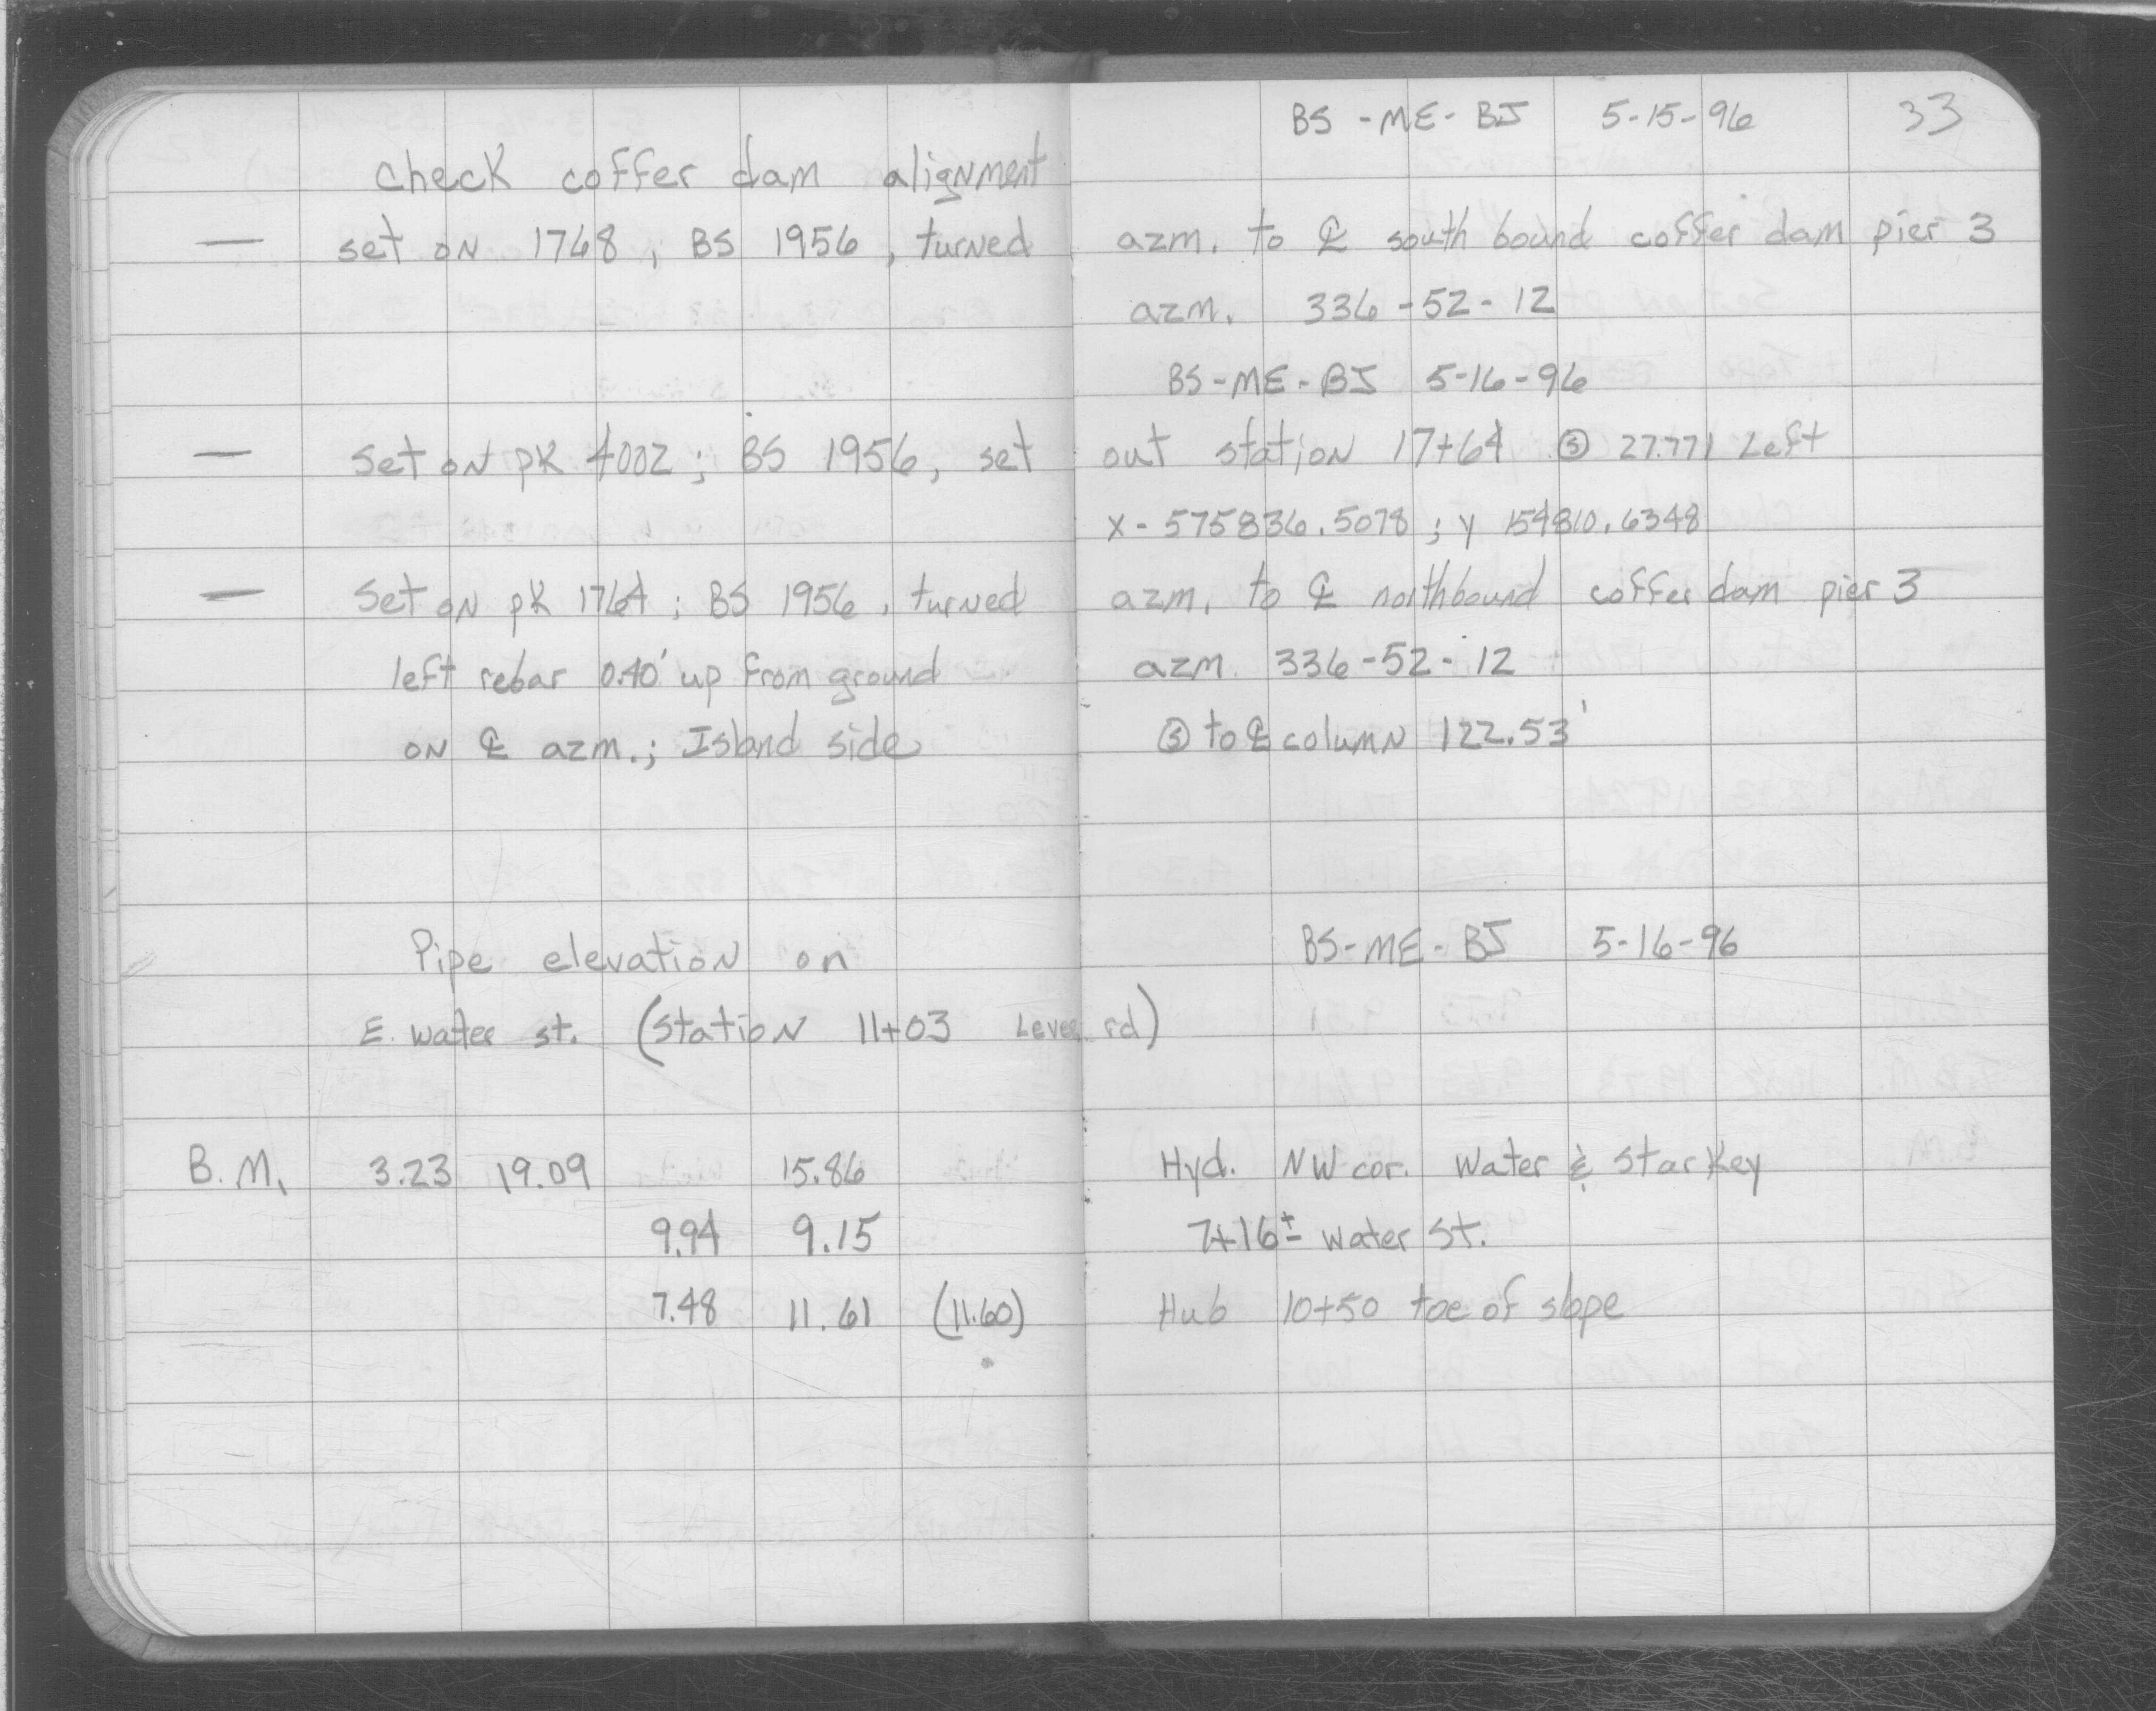 BS - ME - BJ 5-15-96 33
check coffer dam alignment
— set on 1768, BS 1956, turned azm. to ℄ south bound coffer dam pier 3
azm. 336-52-12
BS-ME-BJ 5-16-96
— set on pk 4002; BS 1956, set out station 17+64 Ⓢ 27.771 Left
x - 575836.5078; y 154810.6348
— set on pk 1764; BS 1956, turned azm. to ℄ northbound coffer dam pier 3
left rebar 0.40' up from ground azm. 336-52-12
on ℄ azm.; Island side Ⓢ to ℄ column 122.53'
Pipe elevation on BS-ME-BJ 5-16-96
E. water st. (station 11+03 Levee rd)
B.M. 3.23 19.09 15.86 Hyd. NW cor. Water & Starkey
9.94 9.15 7+16± water st.
7.48 11.61 (11.60) Hub 10+50 toe of slope